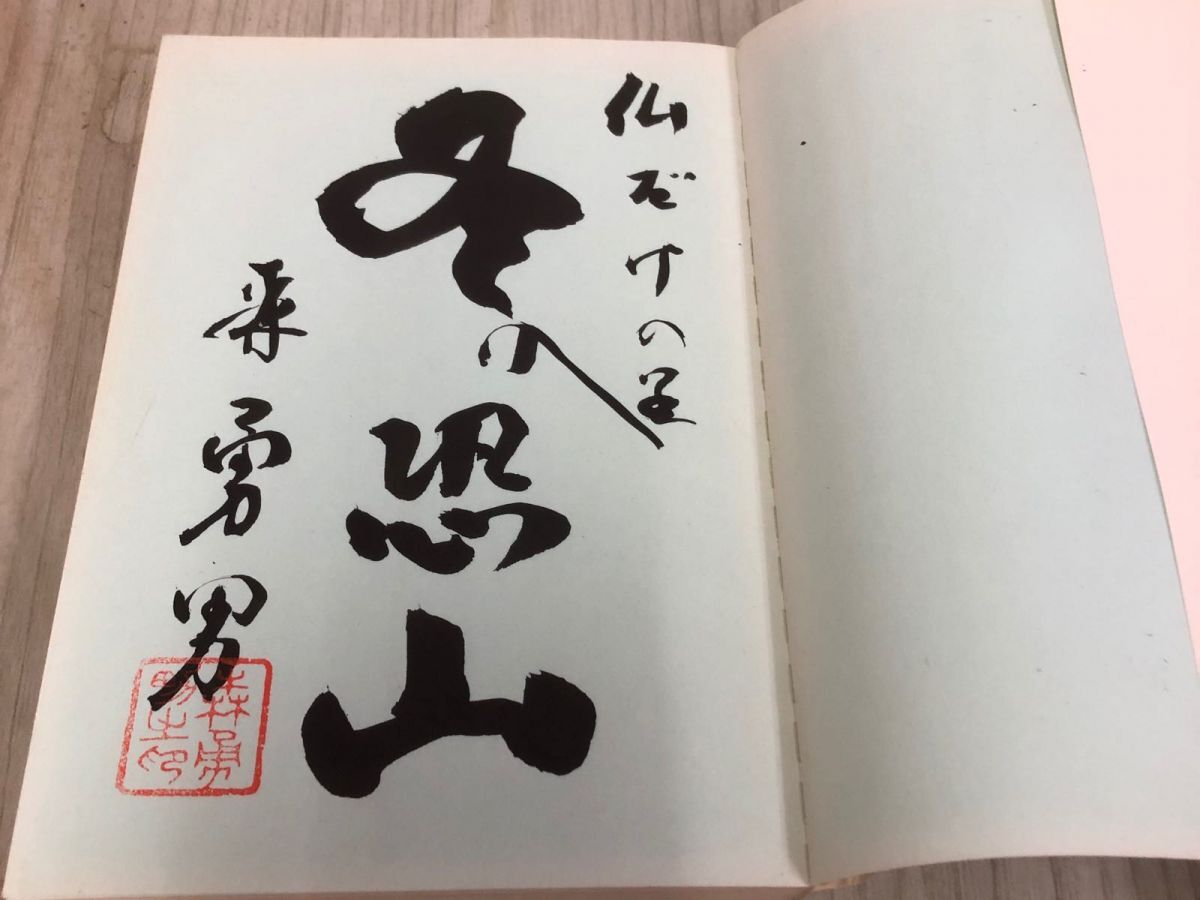 仏だけの里
冬の恐山
森勇男
森勇男之印